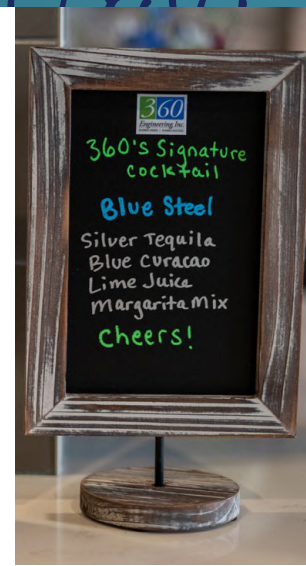 360
Engineering, Inc.
360's Signature
cocktail
Blue Steel
Silver Tequila
Blue Curacao
Lime Juice
Margarita Mix
Cheers!